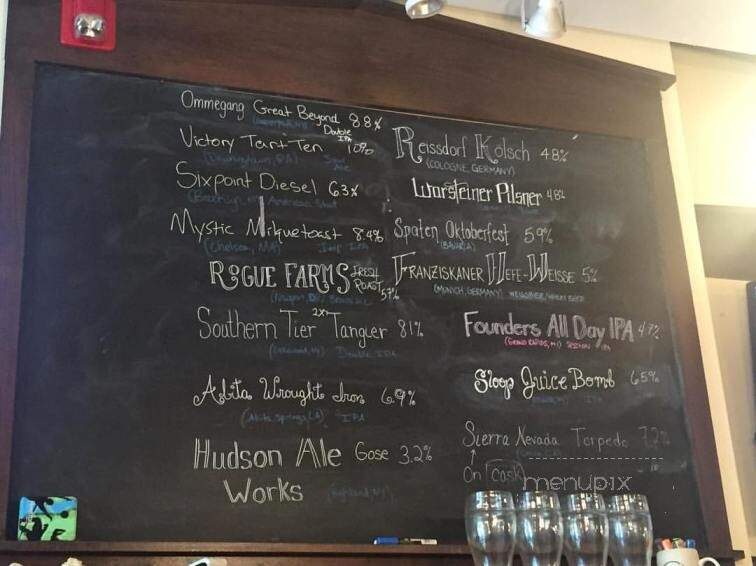 Ommegang Great Beyond 8.8%
Double IPA
Victory Tart Ten 10%
(Downingtown, PA) Sour Ale
Sixpoint Diesel 6.3%
(Brooklyn, NY) American Stout
Mystic Milquetoast 8.4%
(Chelsea, MA) Imp IPA
ROGUE FARMS FRESH ROAST 5.7%
Southern Tier 2X Tangier 8.1%
(Lakewood, NY) Double IPA
Abita Wrought Iron 6.9%
(Abita Springs, LA) IPA
Hudson Ale Works Gose 3.2%
(Highland, NY)
Reissdorf Kölsch 4.8%
(COLOGNE, GERMANY)
Warsteiner Pilsner 4.8%
Spaten Oktoberfest 5.9%
(BAVARIA)
FRANZISKANER HEFE-WEISSE 5%
(MUNICH, GERMANY) WEISSBIER/WHEAT BEER
Founders All Day IPA 4.7%
(GRAND RAPIDS, MI) SESSION IPA
Sloop Juice Bomb 6.5%
IPA
Sierra Nevada Torpedo 7.2%
↑
On cask
menupix